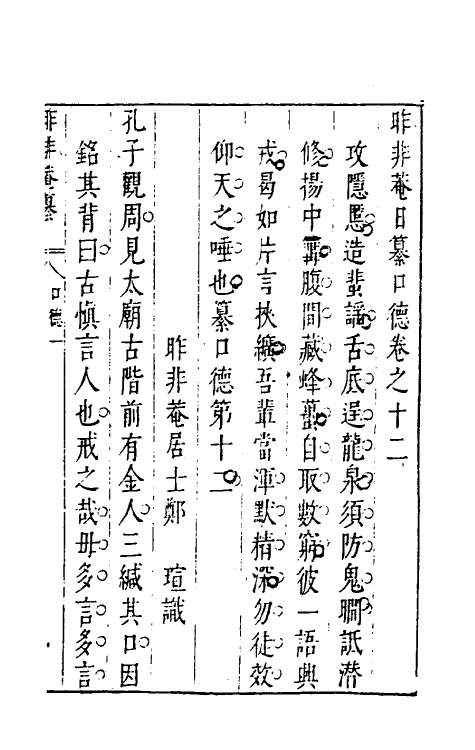 昨非菴日纂口德卷之十二
攻隱慝造蜚謡舌底逞龍泉須防鬼瞷詆潛
修揚中冓腹間藏蜂蠆自取數窮彼一語興
戎曷如片言挾纊吾輩當渾默精深勿徒效
仰天之唾也纂口德第十二
昨非菴居士鄭 瑄識
孔子觀周見太廟古階前有金人三緘其口因
銘其背曰古慎言人也戒之哉毋多言多言
昨非菴纂 八 口德 一